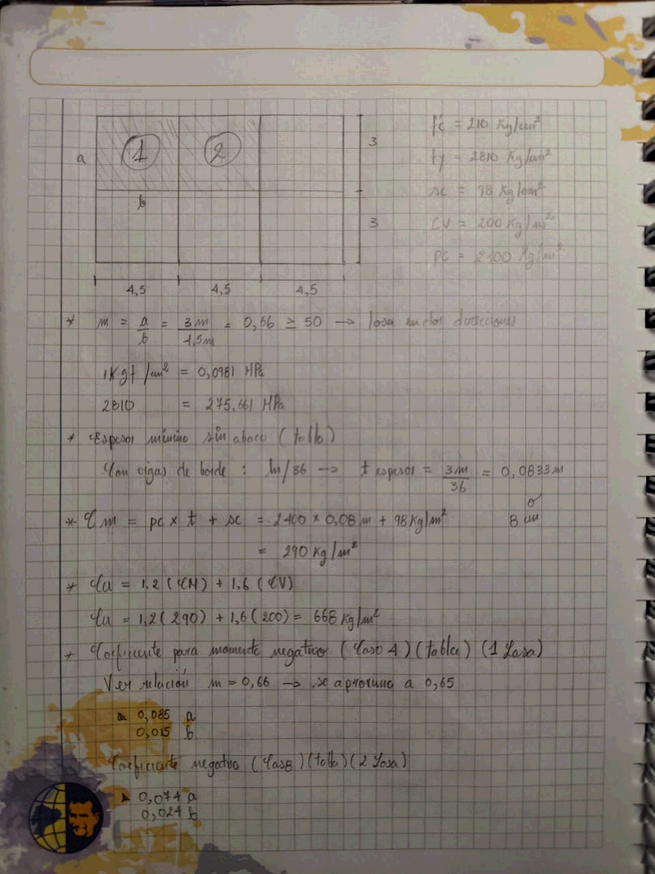 1
2
a
b
3
3
4,5
4,5
4,5
f'c = 210 Kg/cm²
fy = 2810 Kg/cm²
sc = 98 Kg/m²
CV = 200 Kg/m²
pc = 2400 Kg/m²
* m = a/b = 3m/4,5m = 0,66 ≥ 50 → losa en dos direcciones
1Kgf/cm² = 0,0981 MPa
2810 = 275,661 MPa
* Espesor mínimo sin abaco (tabla)
Con vigas de borde : ln/36 → t espesor = 3m/36 = 0,0833m
o
8 cm
* Cm = pc x t + sc = 2400 x 0,08m + 98 Kg/m²
= 290 Kg/m²
* Cu = 1,2 (CM) + 1,6 (CV)
Cu = 1,2 (290) + 1,6 (200) = 668 Kg/m²
* Coeficiente para momento negativo (Caso 4) (tabla) (1 Losa)
Ver relación m = 0,66 → se aproxima a 0,65
0,085 a
0,015 b
Coeficiente negativo (Caso 8) (tabla) (2 Losa)
0,074 a
0,024 b